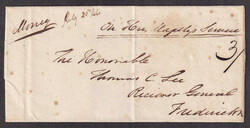 Money
On Her Majesty's Service
3/
The Honorable
Thomas C Lee
Receiver General
Fredericton